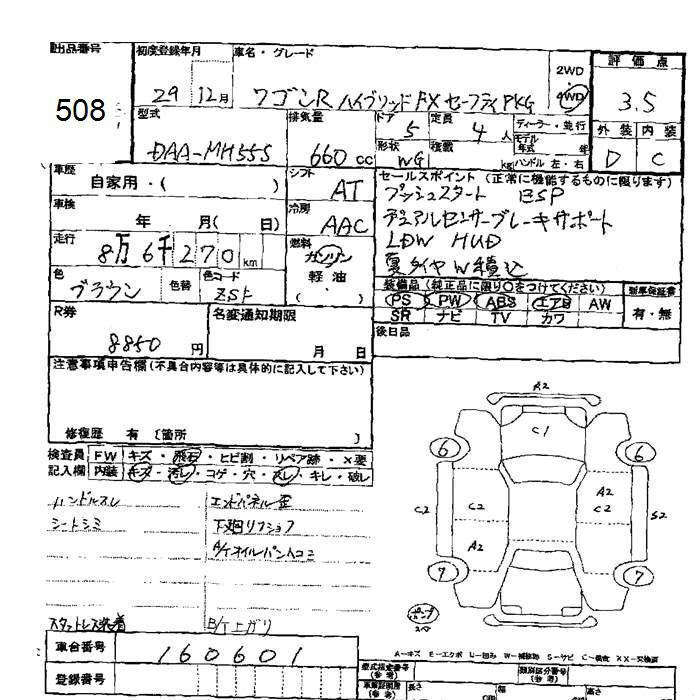 出品番号
508
初度登録年月
29 12月
車名・グレード
ワゴンR ハイブリッドFX セーフティPKG
2WD
4WD
評価点
3.5
外装 内装
D C
型式
DAA-MH55S
排気量
660 cc
ドア
5
定員
4人
ディーラー・並行
モデル年式 年
形状
WG
積載
kg
ハンドル 左・右
車歴
自家用・( )
シフト
AT
車検
年 月( 日)
冷房
AAC
走行
8万6千270 km
燃料
ガソリン
軽油
( ・ )
色
ブラウン
色替
色コード
ZSF
セールスポイント(正常に機能するものに限ります)
プッシュスタート ESP
デュアルセンサーブレーキサポート
LDW HUD
夏タイヤW積込
装備品(純正品に限り〇をつけてください)
PS PW ABS エアB AW
SR ナビ TV カワ
新車保証書
有・無
R券
8850 円
名変通知期限
月 日
後日品
注意事項申告欄(不具合内容等は具体的に記入して下さい)
修復歴 有 〔箇所 〕
検査員記入欄
FW キズ・飛石・ヒビ割・リペア跡・×要
内装 キズ・汚レ・コゲ・穴・スレ・キレ・破レ
ハンドルスレ
シートシミ
エンドパネル歪
下廻りサフショフ
A/Tオイルパンハコミ
スタットレス装着
B/T上ガリ
A2
C1
6 6
A2
C2
C2 C2 S2
A2
7 7
A-キズ E-エクボ U-凹み W-補修跡 S-サビ C-腐食 XX-交換済
車台番号
160601
登録番号
型式指定番号
(参考)
類別区分番号
(参考)